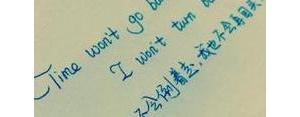 Time won't go ba
I won't turn
不会倒着走,我也不会再回头